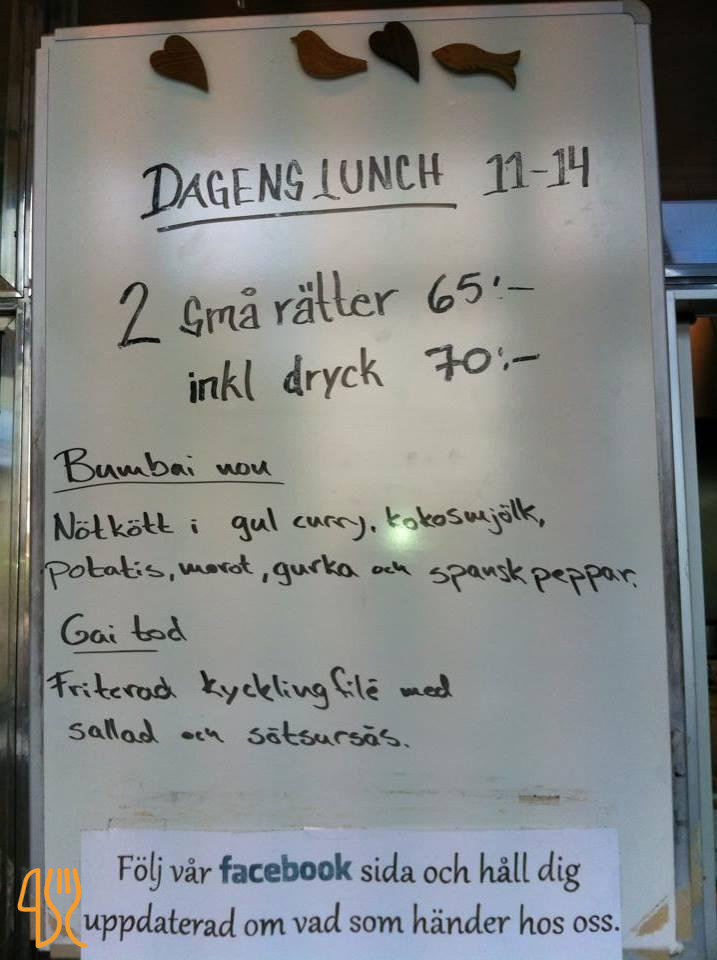 DAGENS LUNCH 11-14
2 små rätter 65:-
inkl dryck 70:-
Bumbai nou
Nötkött i gul curry, kokosmjölk,
potatis, morot, gurka och spansk peppar.
Gai tod
Friterad kycklingfilé med
sallad och sötsursås.
Följ vår facebook sida och håll dig
uppdaterad om vad som händer hos oss.